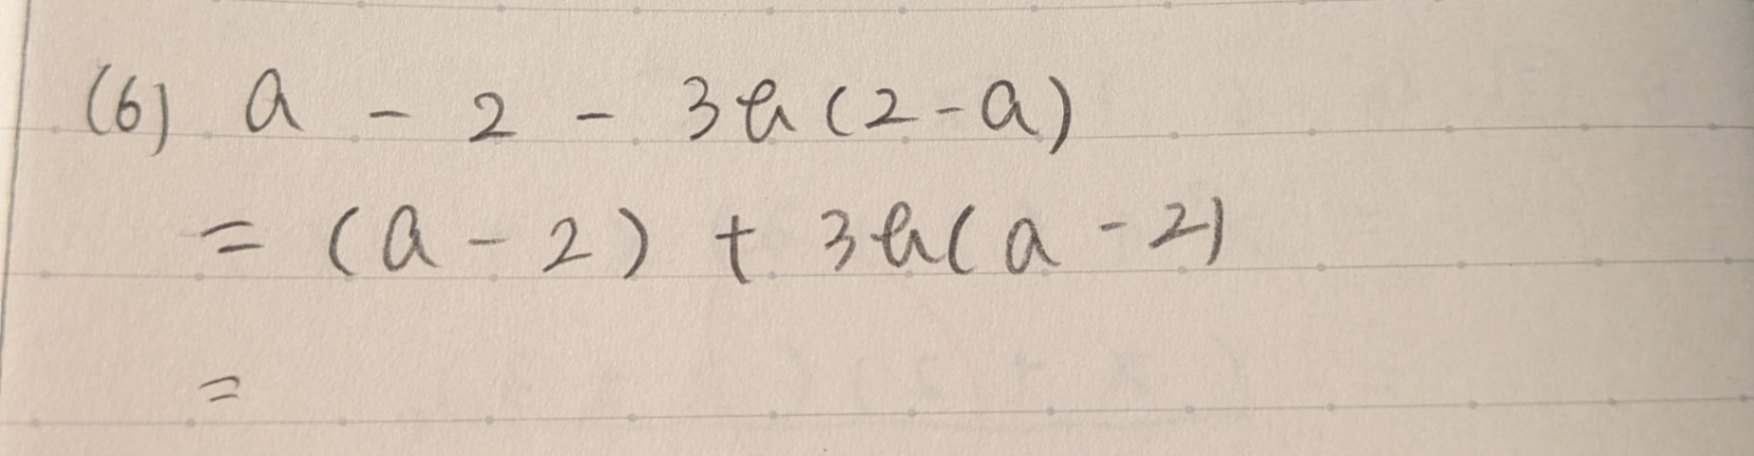 (6) a - 2 - 3a(2-a)
= (a - 2) + 3a(a - 2)
=